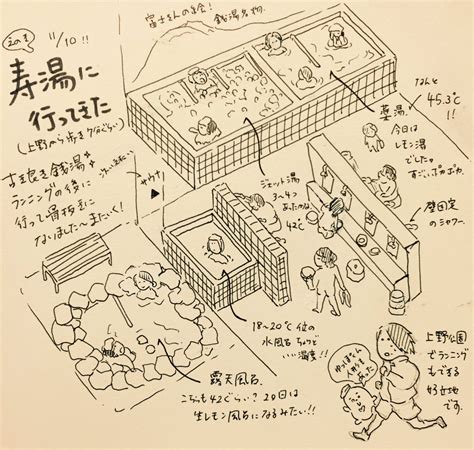 その1
11/10!!
寿湯に
行ってきた
(上野から歩き7分ぐらい)
すき良き銭湯
ランニングの後に
行って骨抜きに
なりました〜またいく!
富士さんの絵!
銭湯名物
サウナ
ジェット湯
3〜4つ
あったかな
42℃
薬湯
なんと
45.3℃
!!
今日は
レモン湯
でしたw
すごいポカポカ
壁固定
のシャワー
18〜20℃位の
水風呂 ちょうど
いい温度!!
露天風呂
こっちも42ぐらい? 20日は
生レモン風呂になるみたい!!
上野公園
でランニング
もできる
好立地
です